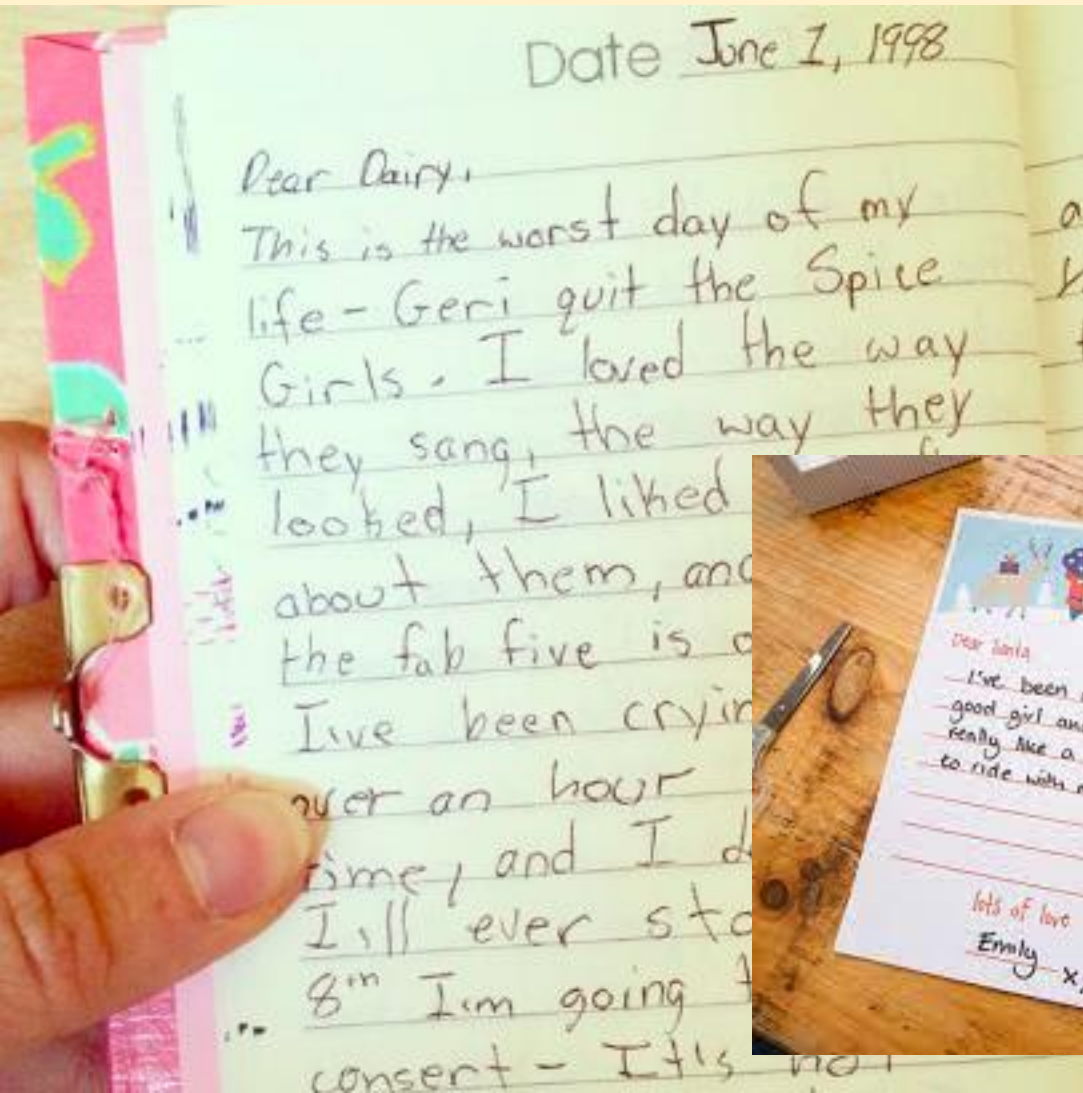 Date June 1, 1998
Dear Dairy,
This is the worst day of my
life - Geri quit the Spice
Girls. I loved the way
they sang, the way they
looked, I liked
about them, and
the fab five is
I've been
over an hour
time, and I
I'll ever
8th I'm going
consert - It's not
a
Dear Santa
I've been
good girl and
really like a
to ride with
lots of love
Emily x